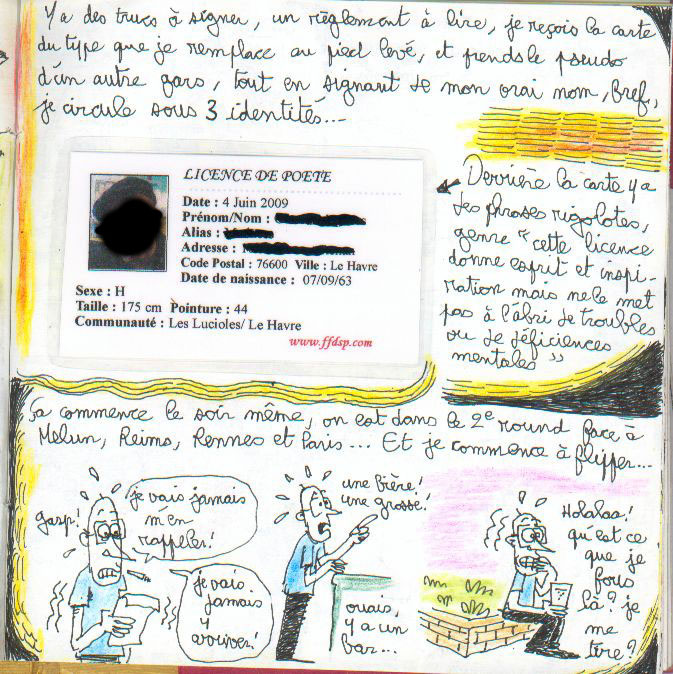 Y'a des trucs à signer, un règlement à lire, je reçois la carte
du type que je remplace au pied levé, et prends le pseudo
d'un autre gars, tout en signant de mon vrai nom, Bref,
je circule sous 3 identités...
LICENCE DE POETE
Date : 4 Juin 2009
Prénom/Nom :
Alias :
Adresse :
Code Postal : 76600 Ville : Le Havre
Date de naissance : 07/09/63
Sexe : H
Taille : 175 cm Pointure : 44
Communauté : Les Lucioles/ Le Havre
www.ffdsp.com
Derrière la carte y a
des phrases rigolotes,
genre "cette licence
donne esprit et inspi-
ration mais ne le met
pas à l'abri de troubles
ou de déficiences
mentales"
Ça commence le soir même, on est dans le 2e round face à
Melun, Reims, Rennes et Paris... Et je commence à flipper...
gasp!
je vais jamais
m'en
rappeler!
je vais
jamais
y
arriver!
une bière!
une grosse!
ouais,
y a un
bar...
Holalaa!
qu'est ce
que je
fous
là? je
me
tire?